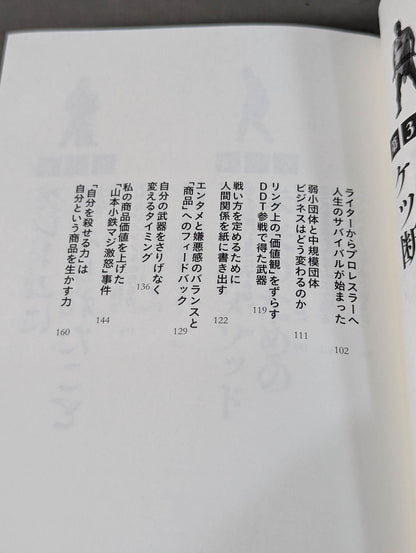 第3
ケッ
断
ライターからプロレスラーへ
人生のサバイバルが始まった
102
弱小団体と中規模団体
ビジネスはどう変わるのか
111
リング上の「価値観」をずらす
DDT参戦で得た武器
119
戦い方を定めるために
人間関係を紙に書き出す
122
エンタメと嫌悪感のバランスと
「商品」へのフィードバック
129
自分の武器をさりげなく
変えるタイミング
136
私の商品価値を上げた
「山本小鉄マジ激怒」事件
144
「自分を殺せる力」は
自分という商品を生かす力
160